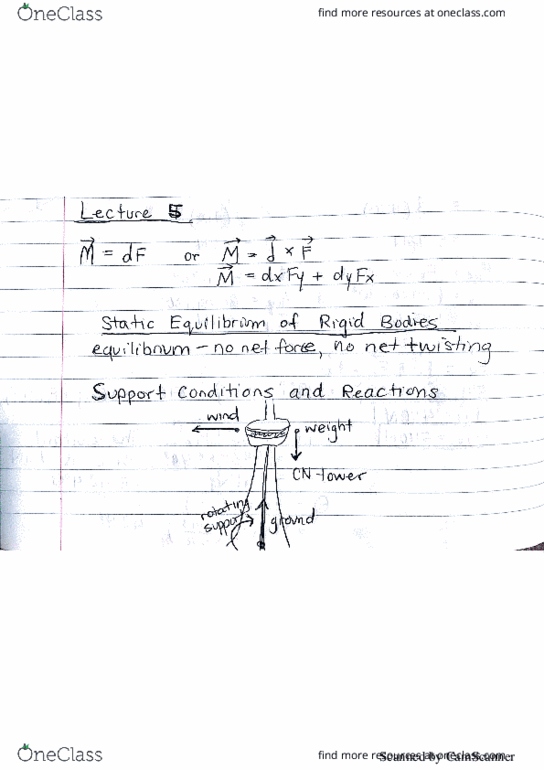 OneClass
find more resources at oneclass.com
Lecture 5
M⃗ = dF or M⃗ = d⃗ × F⃗
M⃗ = dxFy + dyFx
Static Equilibrium of Rigid Bodies
equilibrium – no net force, no net twisting
Support Conditions and Reactions
wind
weight
CN-tower
rotating
support
ground
OneClass
find more resources at oneclass.com
Scanned by CamScanner